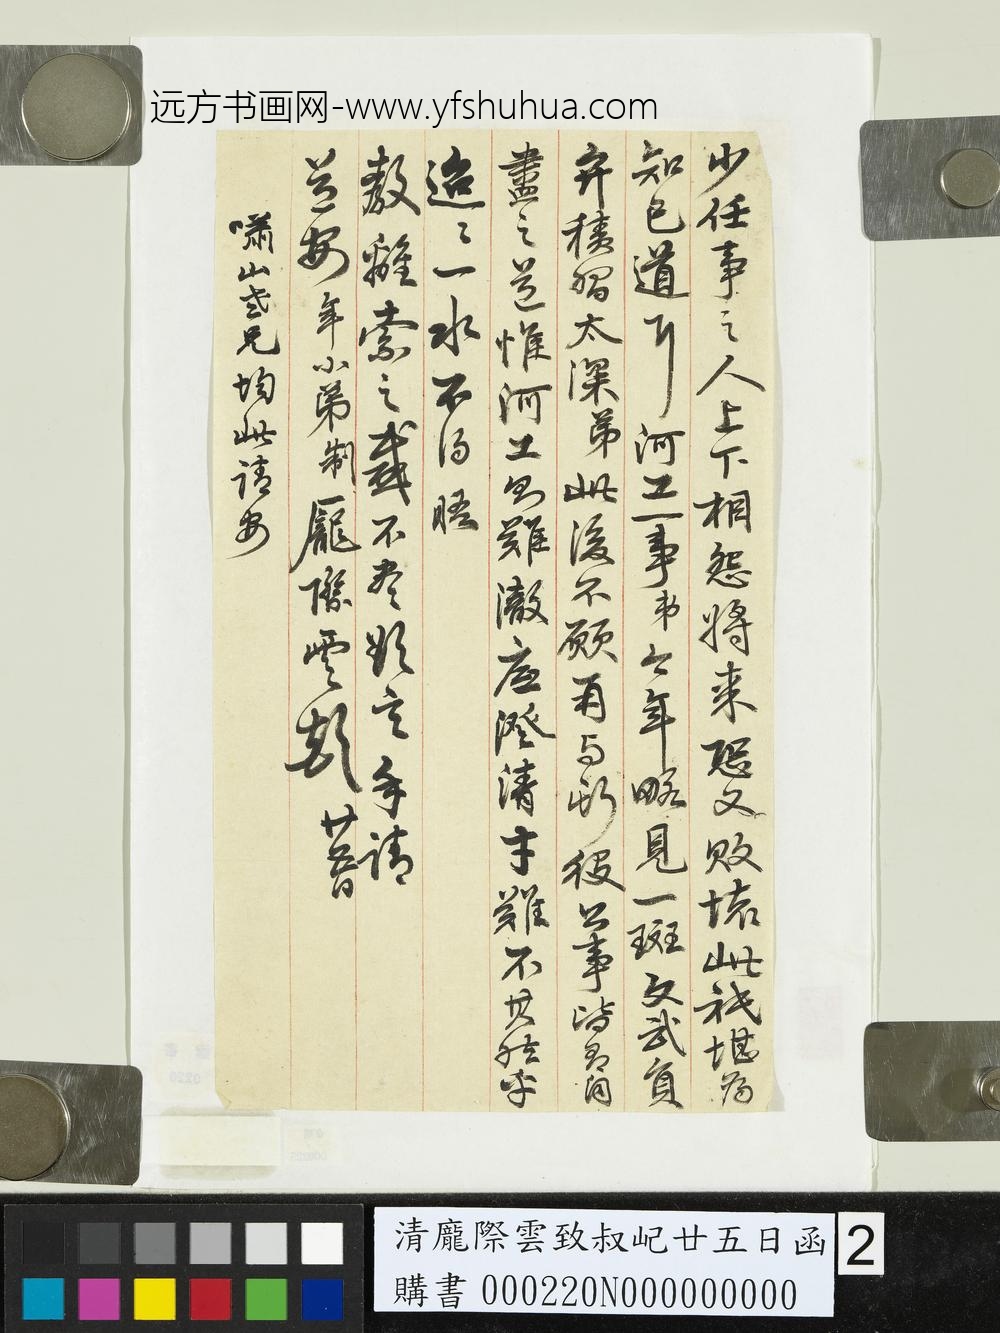 远方书画网-www.yfshuhua.com
少任事之人上下相怨將來恐又敗壞此祇堪為
知己道耳河工一事弟今年略見一斑文武員
弁積習太深弟此後不願再與斯役公事皆有自
盡之道惟河工則難澈底澄清才難不其然乎
迢迢一水不得晤
教離索之感不盡欲言手請
道安年小弟制龐際雲頓廿五日
嘯山老兄均此請安
清龐際雲致叔屺廿五日函
購書 000220N000000000
2